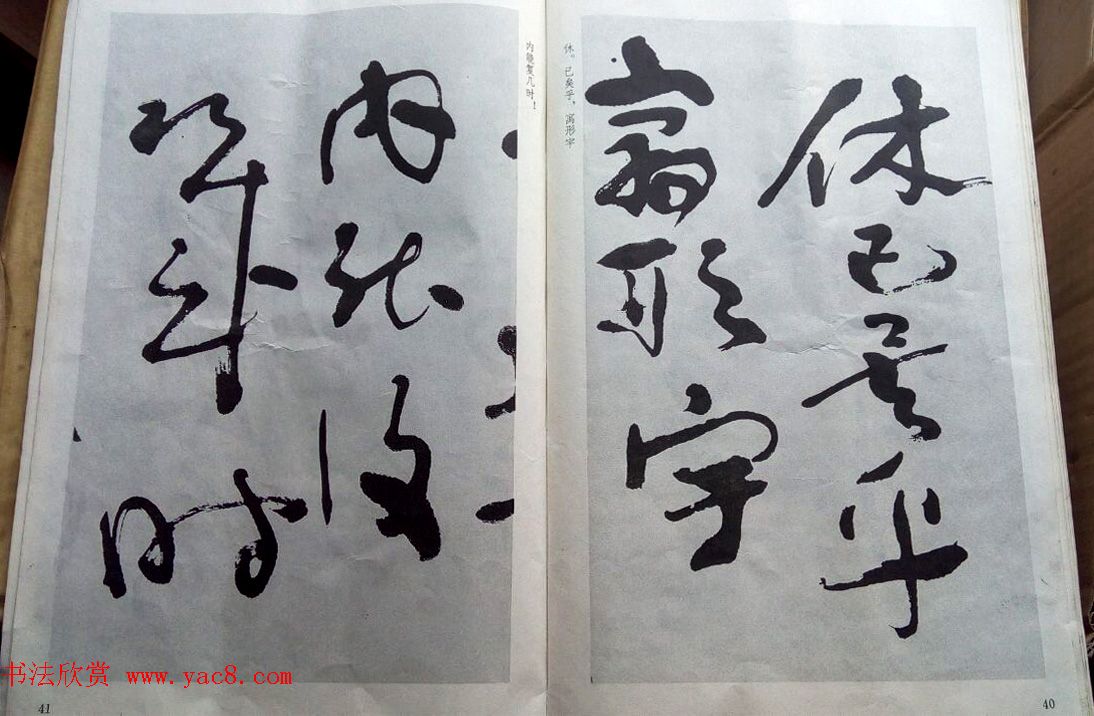 休已矣乎
寓形宇
休。已矣乎,寓形宇
内能复几时!
内能復
幾时
书法欣赏 www.yac8.com
41
40